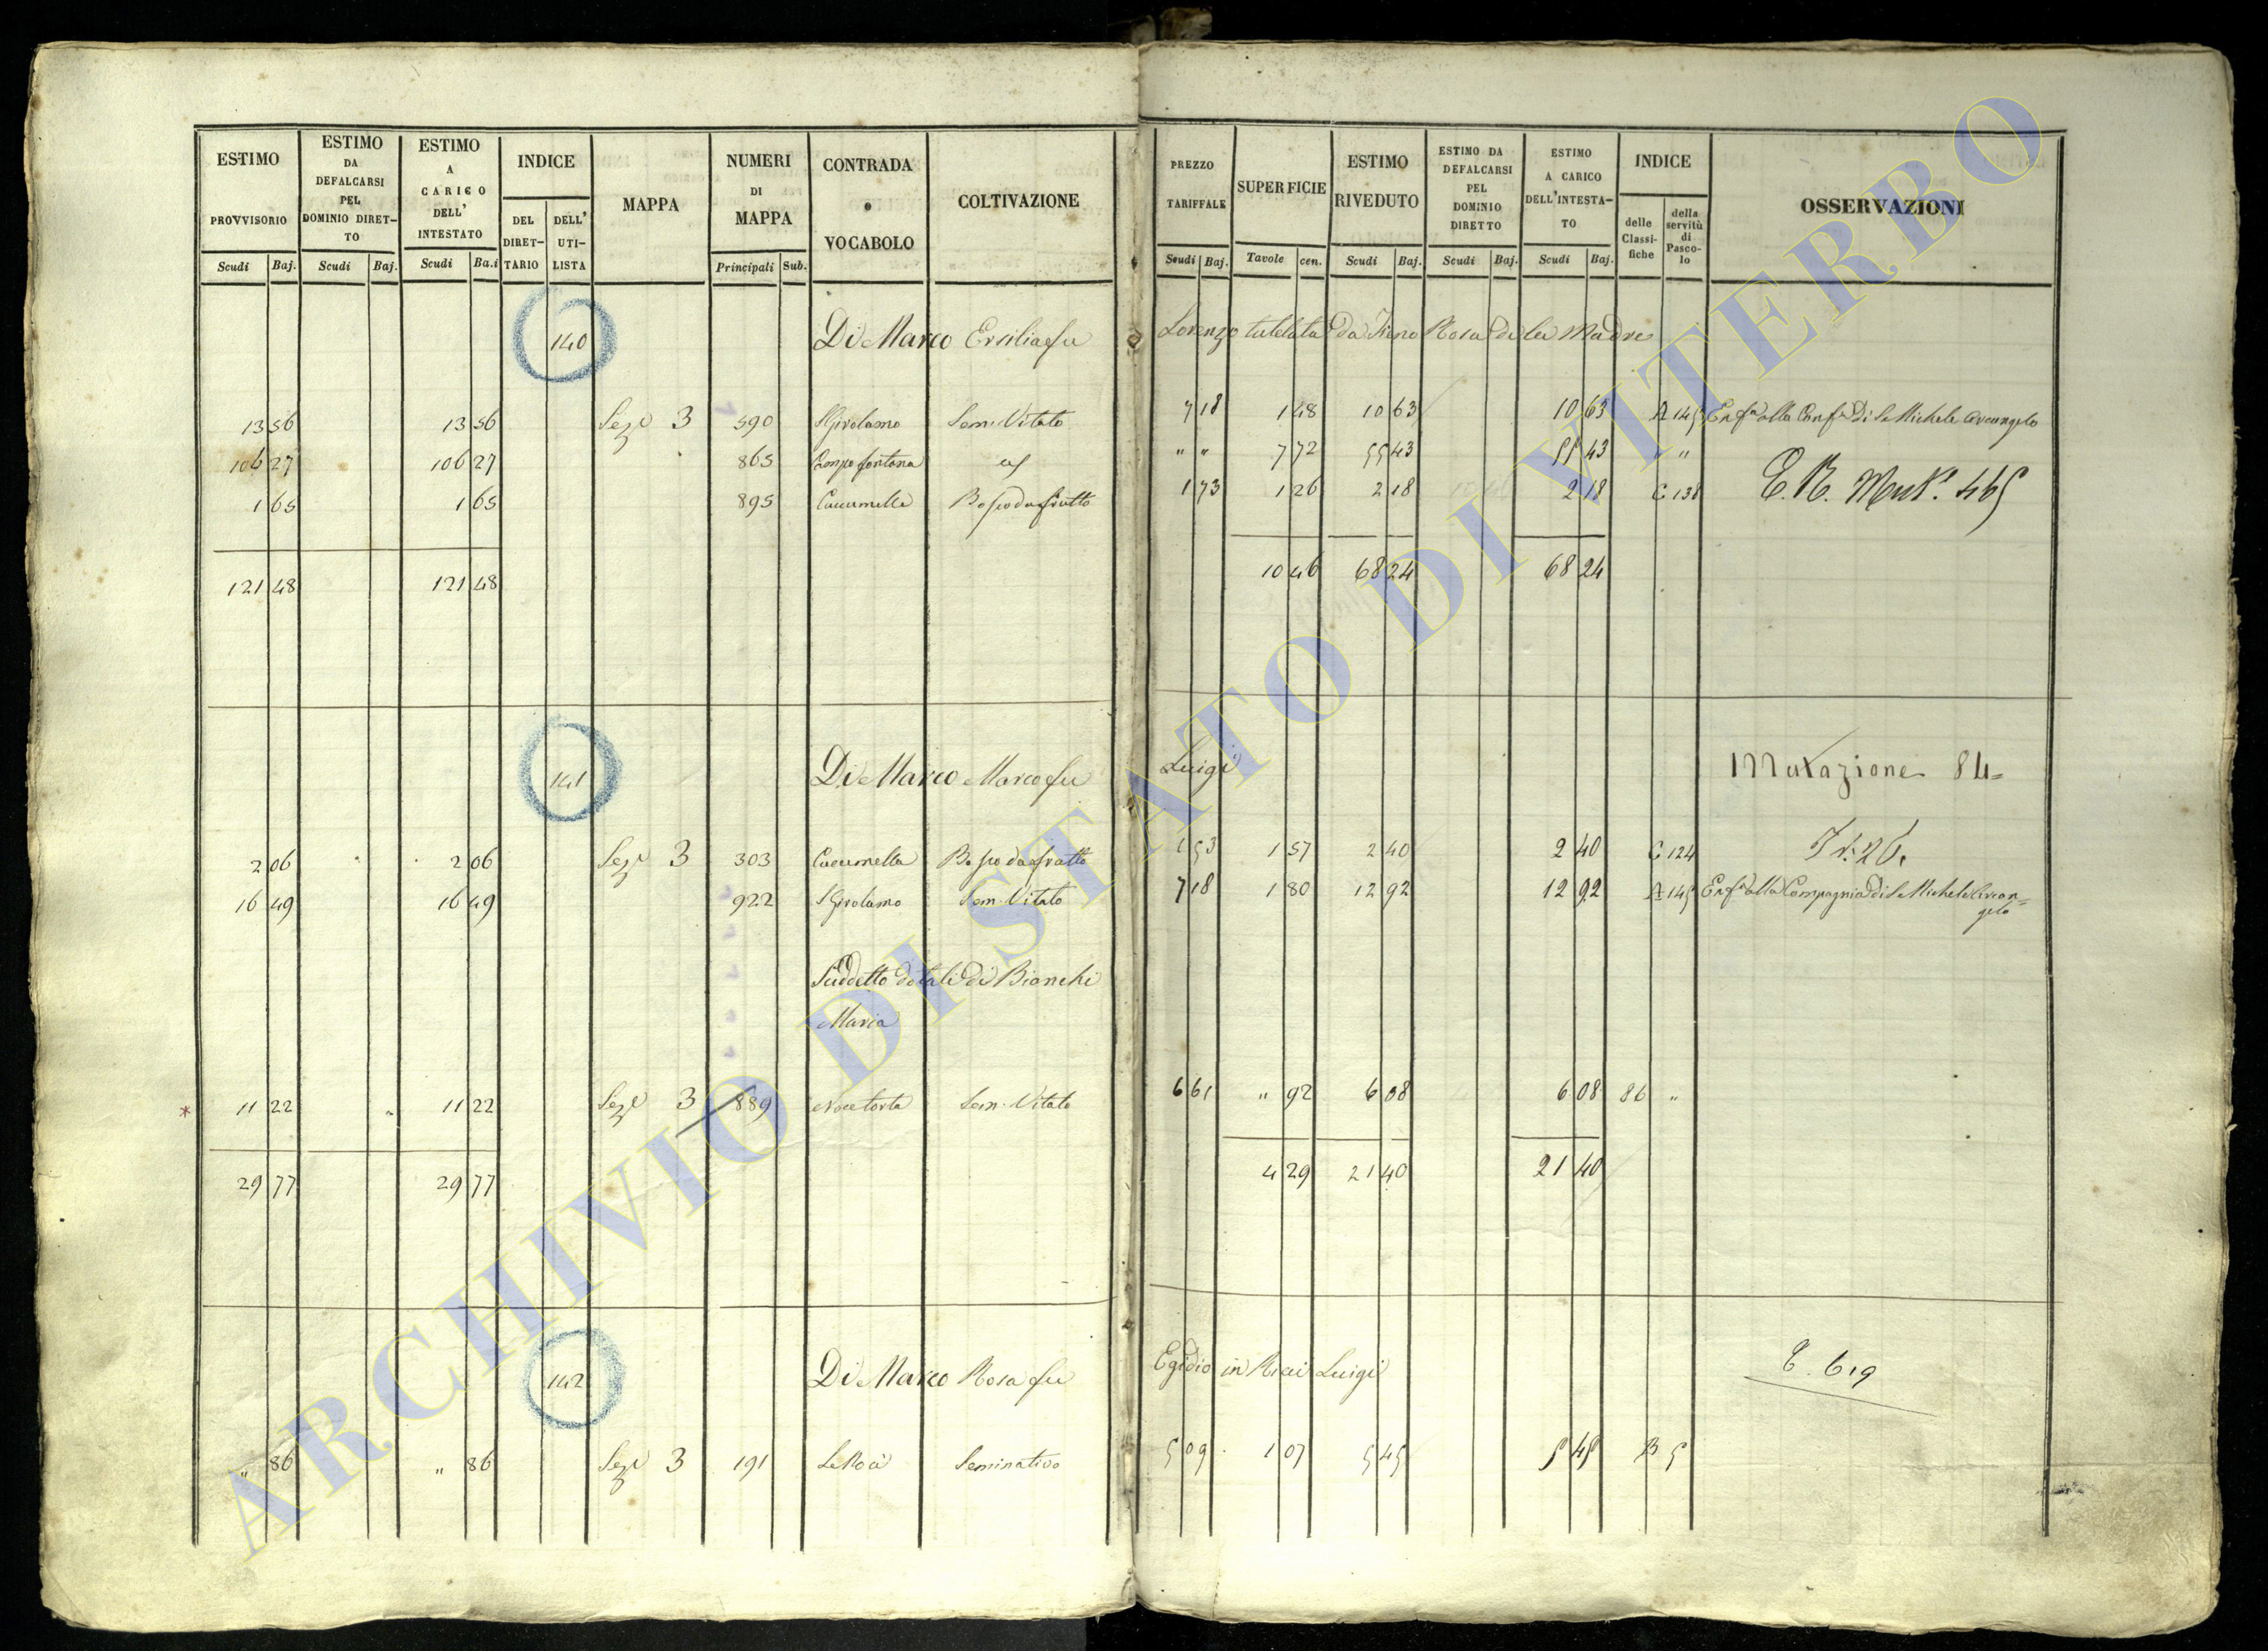 ESTIMO PROVVISORIO Scudi Baj.
ESTIMO DA DEFALCARSI PEL DOMINIO DIRET-TO Scudi Baj.
ESTIMO A CARICO DELL' INTESTATO Scudi Ba.i
INDICE DEL DIRET-TARIO DELL' UTI-LISTA
MAPPA
NUMERI DI MAPPA Principali Sub.
CONTRADA o VOCABOLO
COLTIVAZIONE
PREZZO TARIFFALE Scudi Baj.
SUPERFICIE Tavole cen.
ESTIMO RIVEDUTO Scudi Baj.
ESTIMO DA DEFALCARSI PEL DOMINIO DIRETTO Scudi Baj.
ESTIMO A CARICO DELL'INTESTA-TO Scudi Baj.
INDICE delle Classi-fiche della servitù di Pasco-lo
OSSERVAZIONI
140 Di Marco Ersilia fu Lorenzo tutelata da Rosa di lei Madre
13 56 13 56 Sez.e 3 590 S Girolamo Sem. Vitato 7 18 1 48 10 63 10 63 A 145 Enf.a alla Conf.a di S. Michele Arcangelo
106 27 106 27 865 Campo fontana id 〃 〃 7 72 55 43 55 43 〃
1 65 1 65 895 Cucumella Bosco da frutto 1 73 1 26 2 18 2 18 C 138 E. R. Mut. 465
121 48 121 48 10 46 68 24 68 24
141 Di Marco Marco fu Luigi Mutazione 84=
2 06 2 06 Sez.e 3 303 Cucumella Bosco da frutto 1 53 1 57 2 40 2 40 C 124
16 49 16 49 922 S Girolamo Sem. Vitato 7 18 1 80 12 92 12 92 A 145 Enf.a alla Compagnia di S. Michele Arcan=
gelo
Suddetto dotali di Bianchi
Maria
* 11 22 〃 11 22 Sez.e 3 889 Noce torta Sem. Vitato 6 61 〃 92 6 08 6 08 86 〃
29 77 29 77 4 29 21 40 21 40
142 Di Marco Rosa fu Egidio in Ricci Luigi 619
〃 86 〃 86 Sez.e 3 191 Seminativo 5 09 1 07 5 45 5 45 B 5
ARCHIVIO DI STATO DI VITERBO